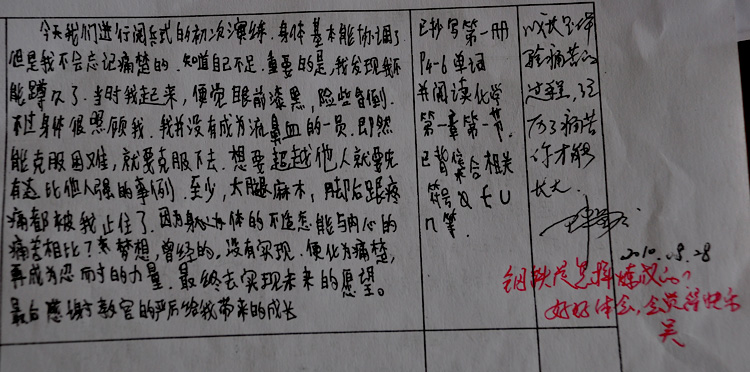 今天我们进行阅兵式的初次演练.身体基本能协调了
但是我不会忘记痛楚的.知道自己不足.重要的是,我发现我不
能蹲久了.当时我起来,便觉眼前漆黑,险些昏倒.
不过身体很照顾我.我并没有成为流鼻血的一员.即然
能克服困难,就要克服下去.想要超越他人就要先
有比他人强的事例.至少,大腿麻木,脚后跟疼
痛都被我止住了.因为身体的不适怎能与内心的
痛苦相比?来梦想,曾经的,没有实现.便化为痛楚,
再成为忍而寸的力量.最终去实现未来的愿望。
最后感谢教官的严厉给我带来的成长
已抄写第一册
P4-6单词
并阅读化学
第一章第一节.
已背集合相关
符号
过程,经
历了痛苦
你才能
长大.
2010.08.28
钢铁是怎样炼成的?
好好体会,会觉得快乐
吴